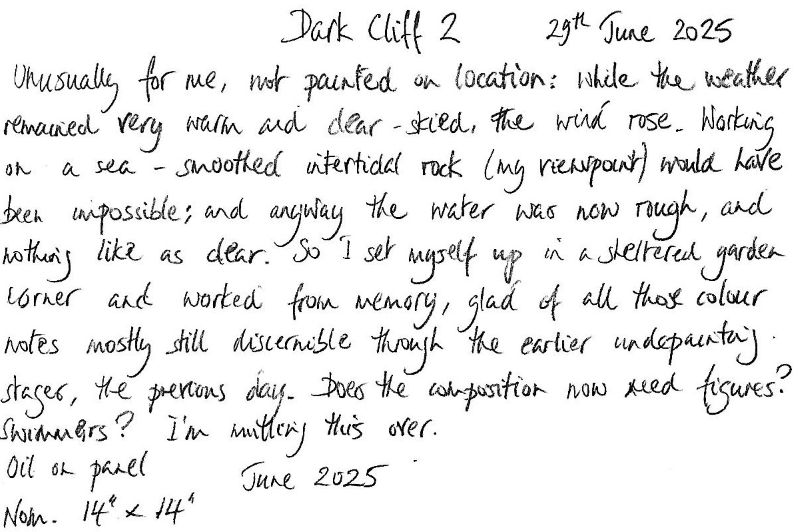 Dark Cliff 2 29th June 2025
Unusually for me, not painted on location: while the weather
remained very warm and clear-skied, the wind rose. Working
on a sea-smoothed intertidal rock (my viewpoint) would have
been impossible; and anyway the water was now rough, and
nothing like as clear. So I set myself up in a sheltered garden
corner and worked from memory, glad of all those colour
notes mostly still discernible through the earlier undepainting
stages, the previous day. Does the composition now need figures?
Swimmers? I'm mulling this over.
Oil on panel June 2025
Nom. 14" x 14"